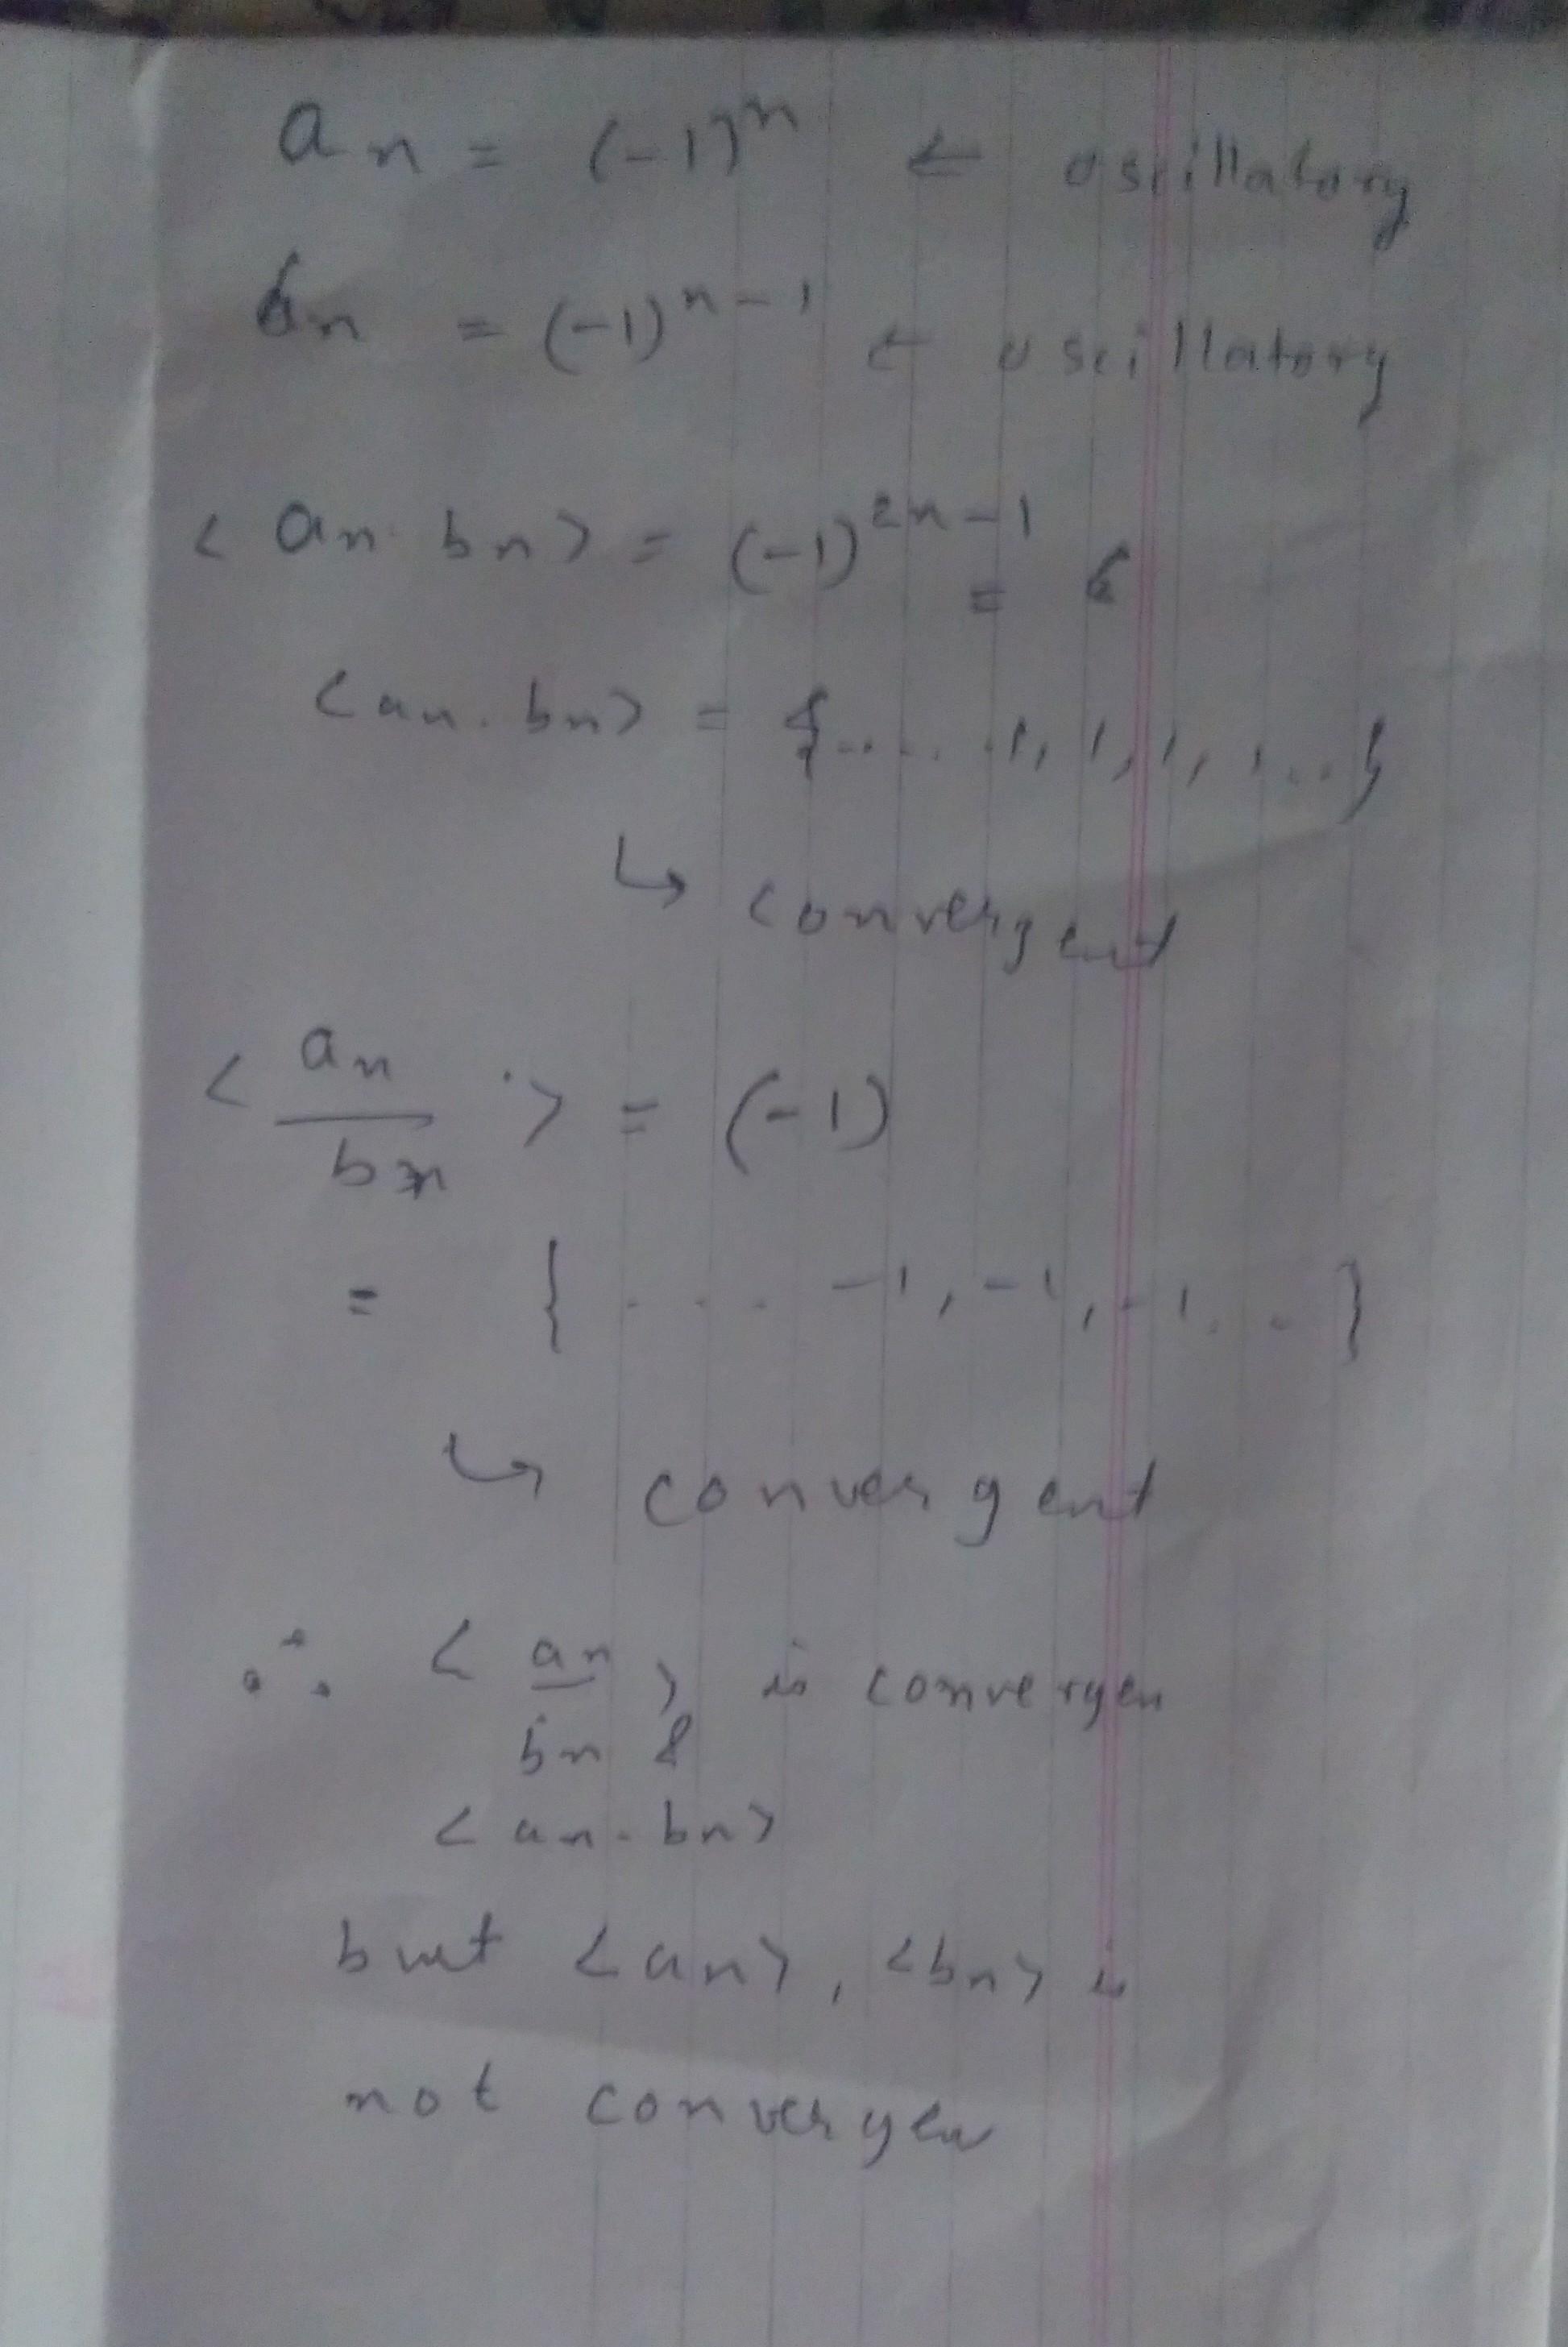 an = (-1)^n ← oscillatory
bn = (-1)^n-1 ← oscillatory
< an. bn > = (-1)^2n-1
=
< an. bn > = {..... 1, 1, 1, 1...}
↳ convergent
< an/bn > = (-1)
= { .... -1, -1, -1... }
↳ convergent
∴ < an/bn > is convergen
&
< an. bn >
but < an >, < bn > is
not convergen